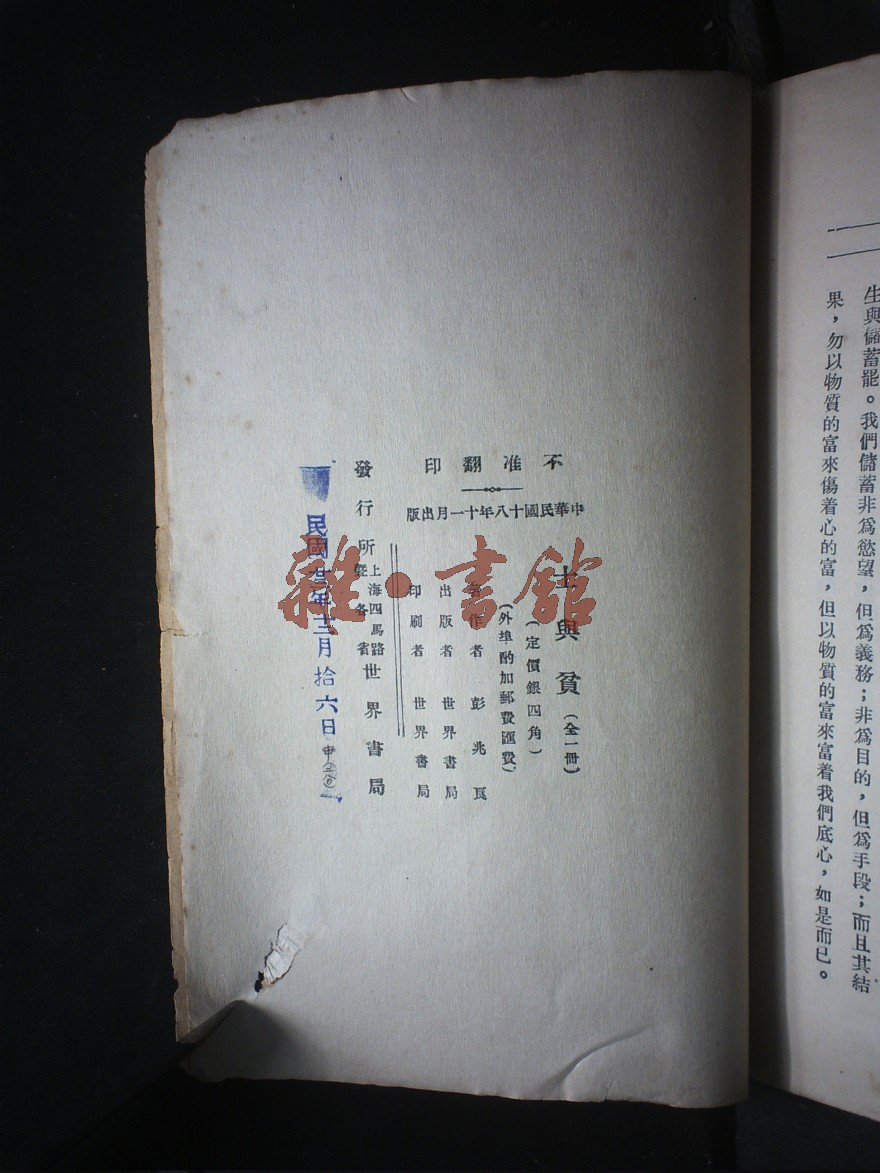 生與儲蓄罷。我們儲蓄非爲慾望，但爲義務；非爲目的，但爲手段；而且其結
果，勿以物質的富來傷着心的富，但以物質的富來富着我們底心，如是而已。
不准翻印
中華民國十八年十一月出版
士與貧（全一冊）
（定價銀四角）
（外埠酌加郵費匯費）
著作者 彭兆良
出版者 世界書局
印刷者 世界書局
發行所 上海四馬路暨各省 世界書局
民國廿二年十二月拾六日
雜·書館